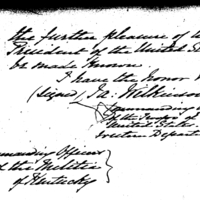 the further pleasure of
President of the United
be made known.
I have the honor
(signed) Ja: Wilkinson
Commanding
of the
United States
Western Depart
manding Officer
of the Militia
of Kentucky